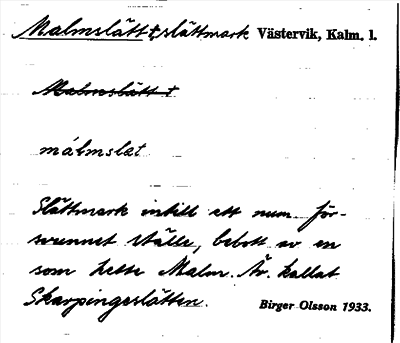 Malmslätt †, slättmark Västervik, Kalm. l.
Malmslätt †
málmslæt
Slåttmark intill ett num. för-
svunnet ställe, bebott av en
som hette Malm. Äv. kallat
Skarpingeslätten.
Birger Olsson 1933.